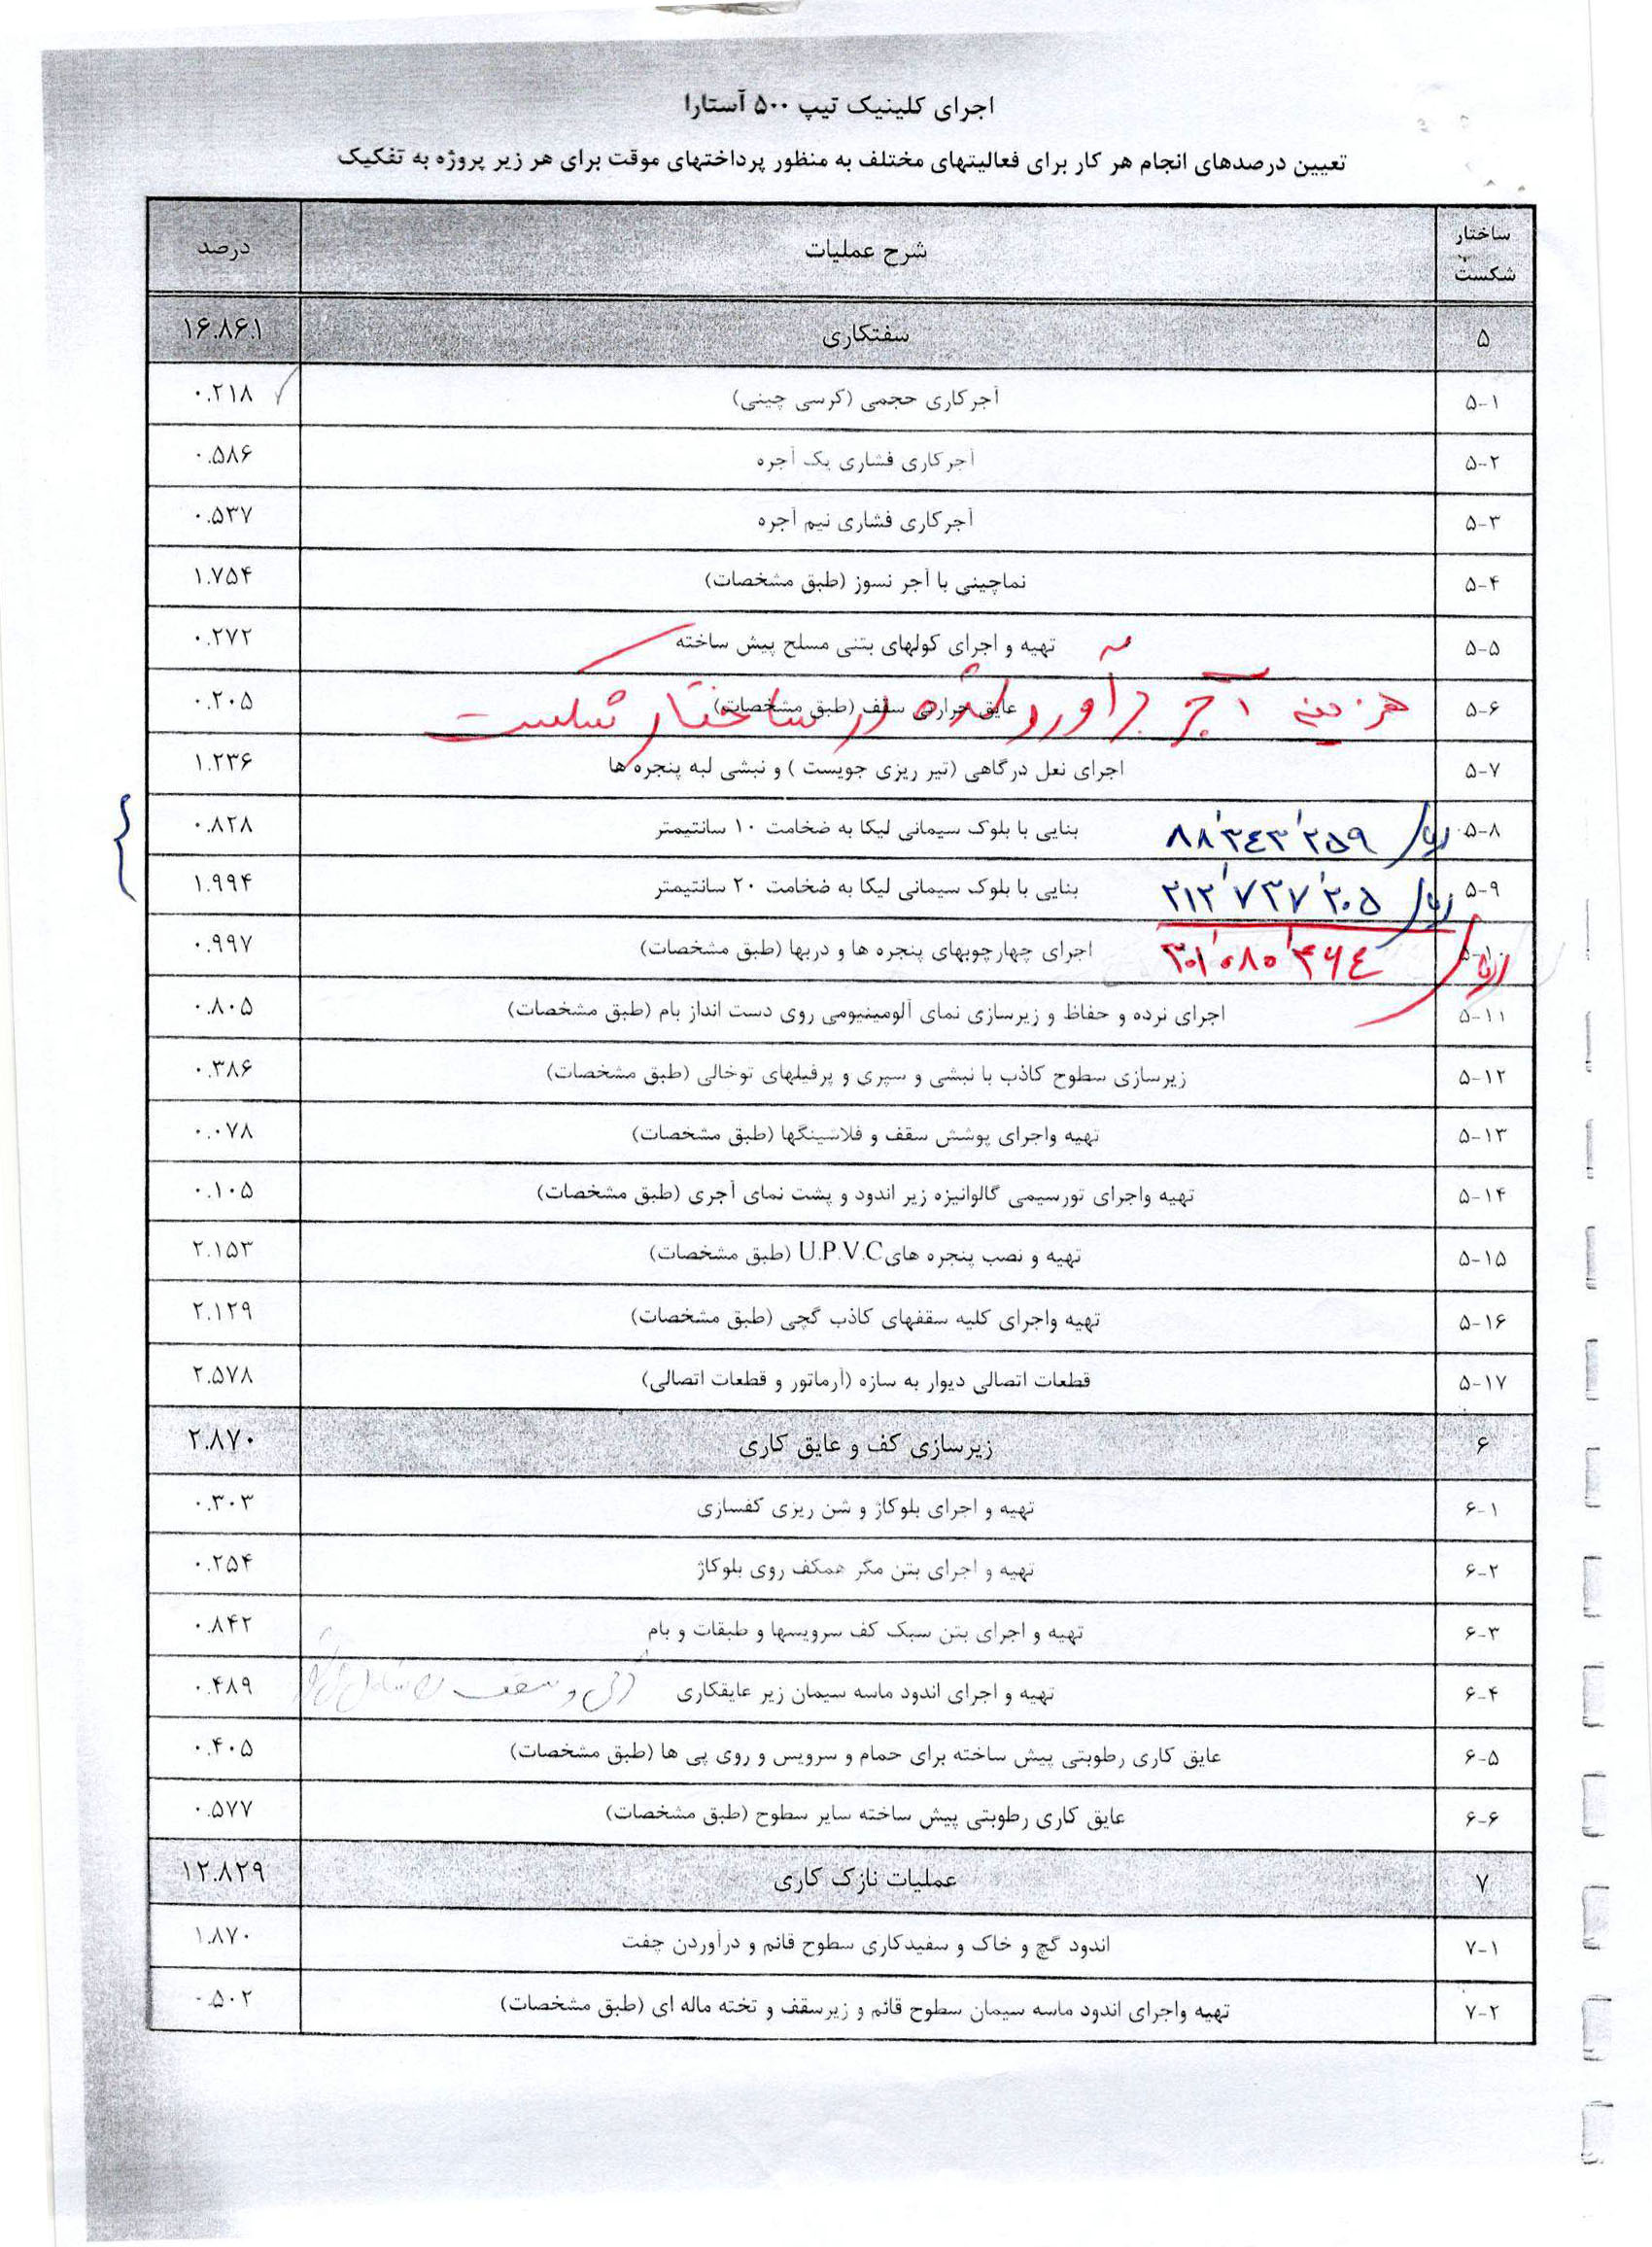 اجرای کلینیک تیپ ۵۰۰ آستارا
تعیین درصدهای انجام هر کار برای فعالیتهای مختلف به منظور پرداختهای موقت برای هر زیر پروژه به تفکیک
ساختار شکست شرح عملیات درصد
۵ سفتکاری ۱۶.۸۶۱
۵-۱ آجرکاری حجمی (کرسی چینی) ۰.۲۱۸
۵-۲ آجرکاری فشاری یک آجره ۰.۵۸۶
۵-۳ آجرکاری فشاری نیم آجره ۰.۵۳۷
۵-۴ نماچینی با آجر نسوز (طبق مشخصات) ۱.۷۵۴
۵-۵ تهیه و اجرای کولهای بتنی مسلح پیش ساخته ۰.۲۷۲
هزینه آجر برآورد شده در ساختار شکست
۵-۶ عایق حرارتی سقف (طبق مشخصات) ۰.۲۰۵
۵-۷ اجرای نعل درگاهی (تیر ریزی جویست ) و نبشی لبه پنجره ها ۱.۲۳۶
۵-۸ ۸۸٬۳۴۳٬۲۵۹ ریال بنایی با بلوک سیمانی لیکا به ضخامت ۱۰ سانتیمتر ۰.۸۲۸
۵-۹ ۲۱۲٬۷۳۷٬۲۰۵ ریال بنایی با بلوک سیمانی لیکا به ضخامت ۲۰ سانتیمتر ۱.۹۹۴
۵-۱۰ ۳۰۱٬۰۸۰٬۴۶۴ ریال اجرای چهارچوبهای پنجره ها و دربها (طبق مشخصات) ۰.۹۹۷
۵-۱۱ اجرای نرده و حفاظ و زیرسازی نمای آلومینیومی روی دست انداز بام (طبق مشخصات) ۰.۸۰۵
۵-۱۲ زیرسازی سطوح کاذب با نبشی و سپری و پرفیلهای توخالی (طبق مشخصات) ۰.۳۸۶
۵-۱۳ تهیه واجرای پوشش سقف و فلاشینگها (طبق مشخصات) ۰.۰۷۸
۵-۱۴ تهیه واجرای تورسیمی گالوانیزه زیر اندود و پشت نمای آجری (طبق مشخصات) ۰.۱۰۵
۵-۱۵ تهیه و نصب پنجره های U.P.V.C (طبق مشخصات) ۲.۱۵۳
۵-۱۶ تهیه واجرای کلیه سقفهای کاذب گچی (طبق مشخصات) ۲.۱۲۹
۵-۱۷ قطعات اتصالی دیوار به سازه (آرماتور و قطعات اتصالی) ۲.۵۷۸
۶ زیرسازی کف و عایق کاری ۲.۸۷۰
۶-۱ تهیه و اجرای بلوکاژ و شن ریزی کفسازی ۰.۳۰۳
۶-۲ تهیه و اجرای بتن مگر همکف روی بلوکاژ ۰.۲۵۴
۶-۳ تهیه و اجرای بتن سبک کف سرویسها و طبقات و بام ۰.۸۴۲
۶-۴ تهیه و اجرای اندود ماسه سیمان زیر عایقکاری ۰.۴۸۹
۶-۵ عایق کاری رطوبتی پیش ساخته برای حمام و سرویس و روی پی ها (طبق مشخصات) ۰.۴۰۵
۶-۶ عایق کاری رطوبتی پیش ساخته سایر سطوح (طبق مشخصات) ۰.۵۷۷
۷ عملیات نازک کاری ۱۲.۸۲۹
۷-۱ اندود گچ و خاک و سفیدکاری سطوح قائم و درآوردن چفت ۱.۸۷۰
۷-۲ تهیه واجرای اندود ماسه سیمان سطوح قائم و زیرسقف و تخته ماله ای (طبق مشخصات) ۰.۵۰۲